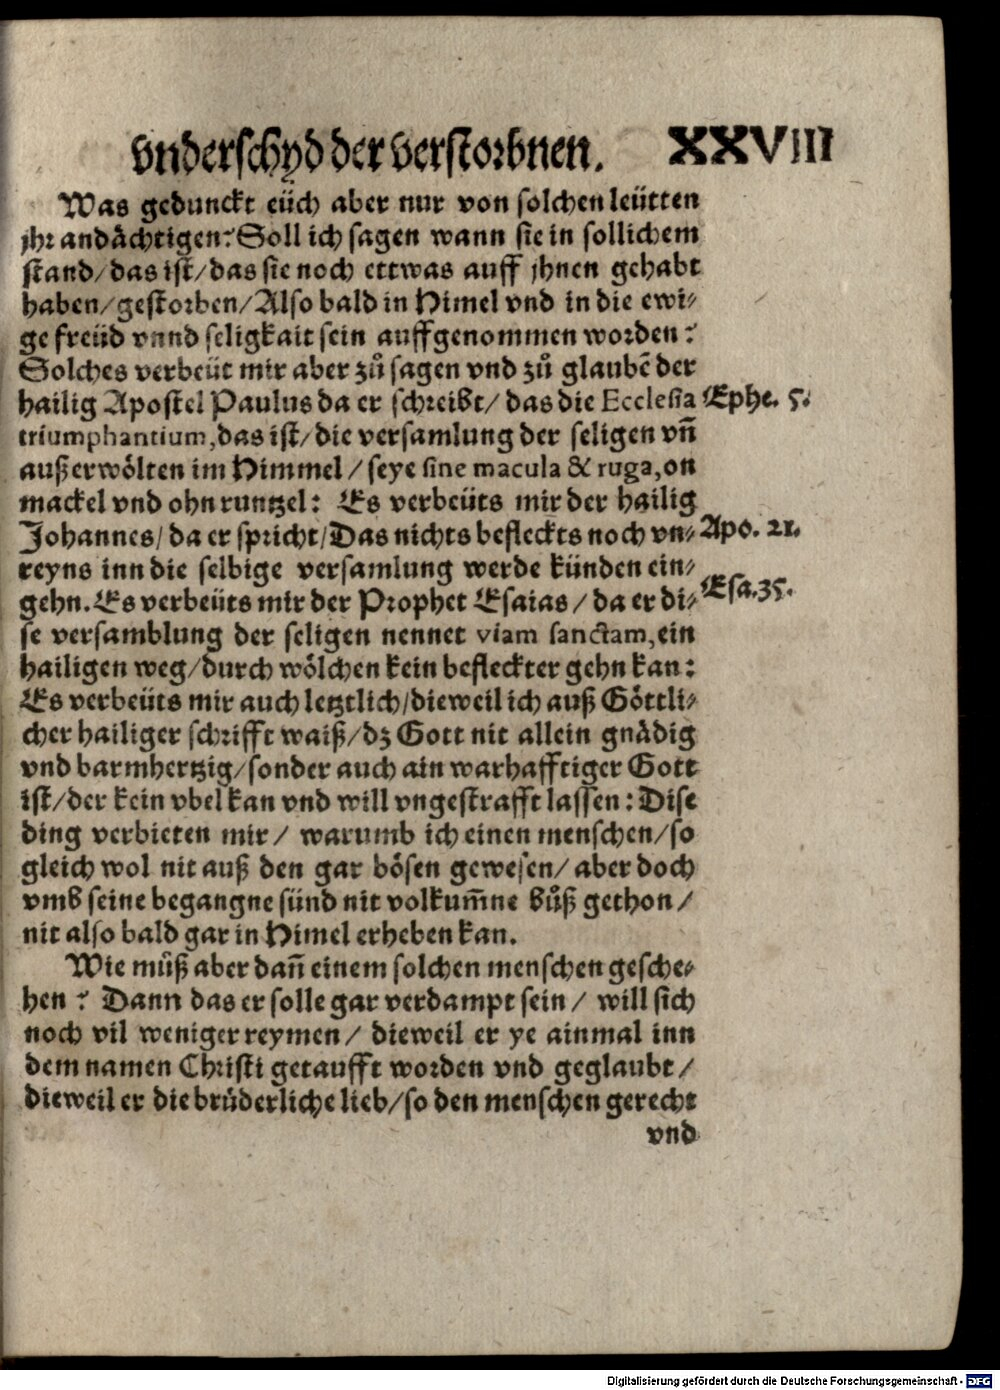 vnderschyd der verstorbnen. XXVIII
Was gedunckt eüch aber nur von solchen leütten
jhr andächtigen? Soll ich sagen wann sie in sollichem
stand/ das ist/ das sie noch ettwas auff jhnen gehabt
haben/ gestorben/ Also bald in Himel vnd in die ewi⸗
ge freüd vnnd seligkait sein auffgenommen worden?
Solches verbeüt mir aber zů sagen vnd zů glaubē der
hailig Apostel Paulus da er schreibt/ das die Ecclesia
Ephe. 5.
triumphantium, das ist/ die versamlung der seligen vn̄
außerwölten im Himmel/ seye sine macula & ruga, on
mackel vnd ohn runtzel: Es verbeüts mir der hailig
Johannes/ da er spricht/ Das nichts befleckts noch vn⸗
Apo. 21.
reyns inn die selbige versamlung werde künden ein⸗
gehn. Es verbeüts mir der Prophet Esaias/ da er di⸗
Esa. 35.
se versamblung der seligen nennet viam sanctam, ein
hailigen weg/ durch wölchen kein befleckter gehn kan:
Es verbeüts mir auch letztlich/ dieweil ich auß Göttli⸗
cher hailiger schrifft waiß/ dz Gott nit allein gnädig
vnd barmhertzig/ sonder auch ain warhafftiger Gott
ist/ der kein vbel kan vnd will vngestrafft lassen: Dise
ding verbieten mir/ warumb ich einen menschen/ so
gleich wol nit auß den gar bösen gewesen/ aber doch
vmb seine begangne sünd nit volkum̄ne bůß gethon/
nit also bald gar in Himel erheben kan.
Wie můß aber dan̄ einem solchen menschen gesche⸗
hen? Dann das er solle gar verdampt sein/ will sich
noch vil weniger reymen/ dieweil er ye ainmal inn
dem namen Christi getaufft worden vnd geglaubt/
dieweil er die brůderliche lieb/ so den menschen gerecht
vnd
Digitalisierung gefördert durch die Deutsche Forschungsgemeinschaft - DFG